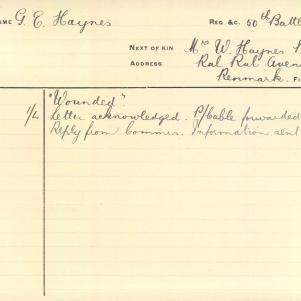 NAME G. E. Haynes REG &C. 50th Battl
NEXT OF KIN Mrs W. Haynes
ADDRESS Ral Ral Aven
Renmark.
"Wounded"
1/L Letter acknowledged. P/Cable forwarded
Reply from Commrs. Information sent